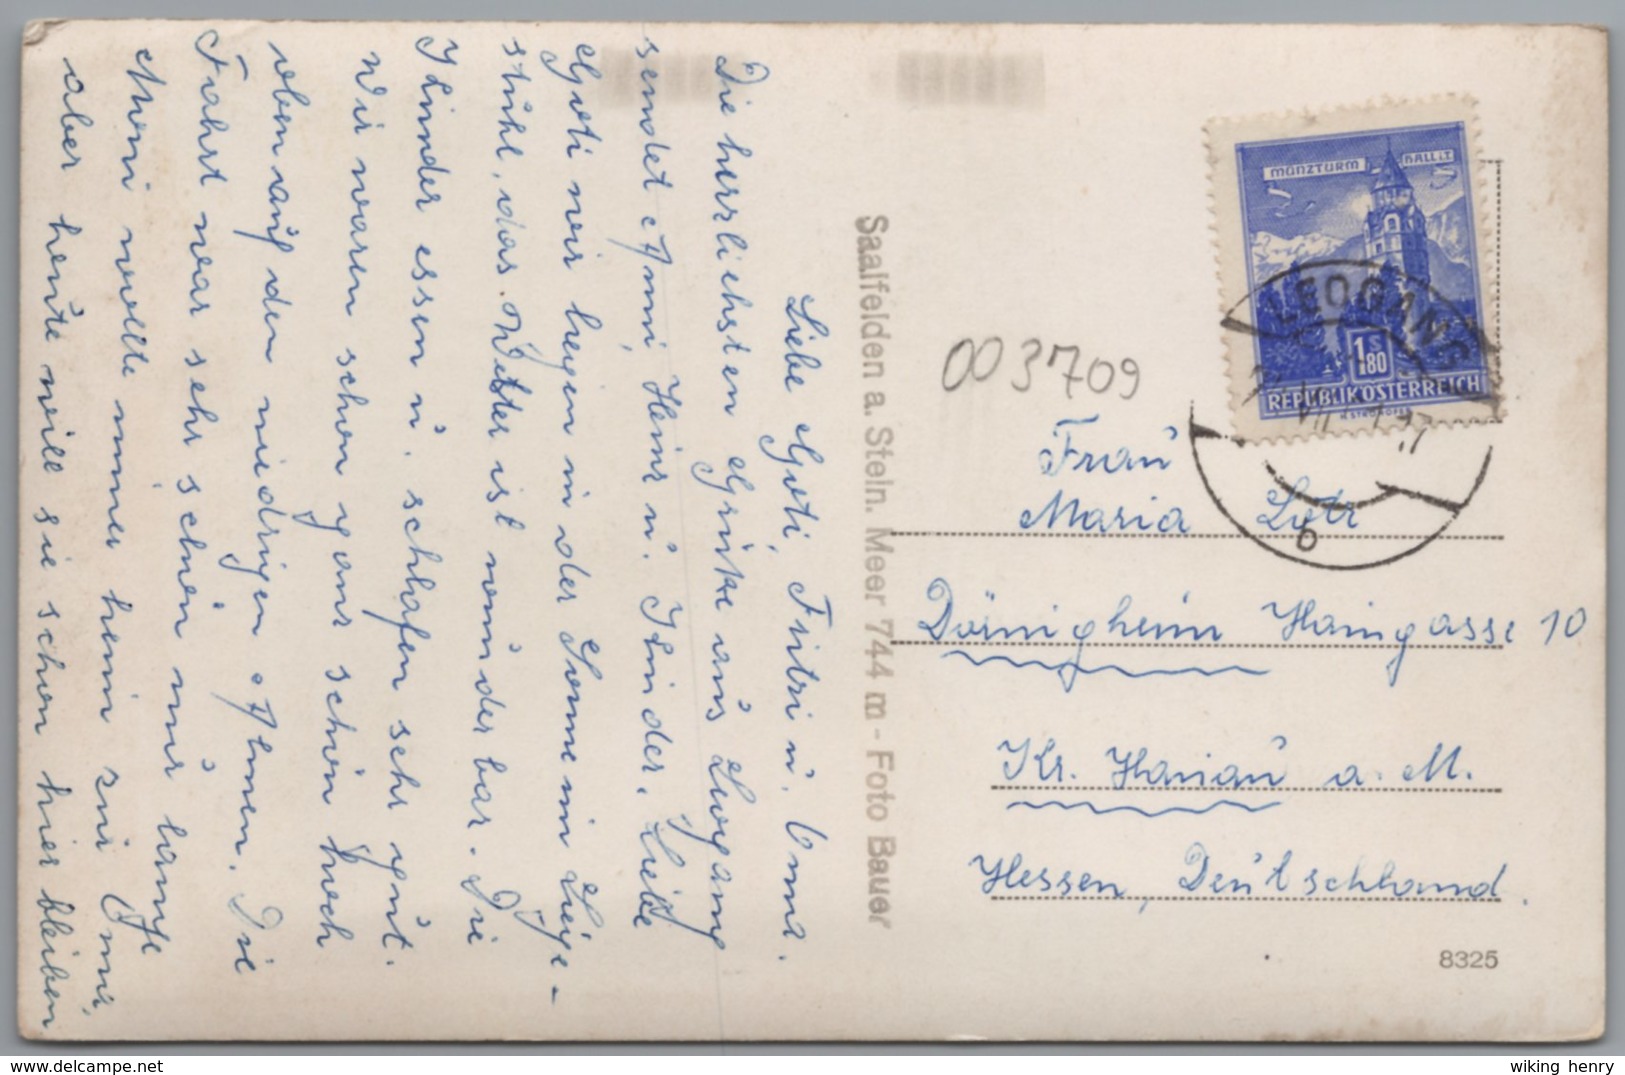 Liebe Goti, Fritzi u. Oma.
Die herrlichsten Grüße aus Leogang
sendet Anni, Heinz u. Kinder. Liebe
Goti wir liegen in der Sonne im Liege-
stuhl, das Wetter ist wunderbar. Die
Kinder essen u. schlafen sehr gut.
Wir waren schon ganz schön hoch
oben auf den niedrigen Almen. Die
Fahrt war sehr schön nur lange
Moni wollte immer heim zur Omi,
aber heute will sie schon hier bleiben
Saalfelden a. Stein. Meer 744 m - Foto Bauer
003709
MÜNZTURM HALL i.T.
1 S 80
REPUBLIK ÖSTERREICH
LEOGANG
b
Frau
Maria Lotz
Dörnigheim Haingasse 10
Kr. Hanau a. M.
Hessen, Deutschland.
8325
wiking henry